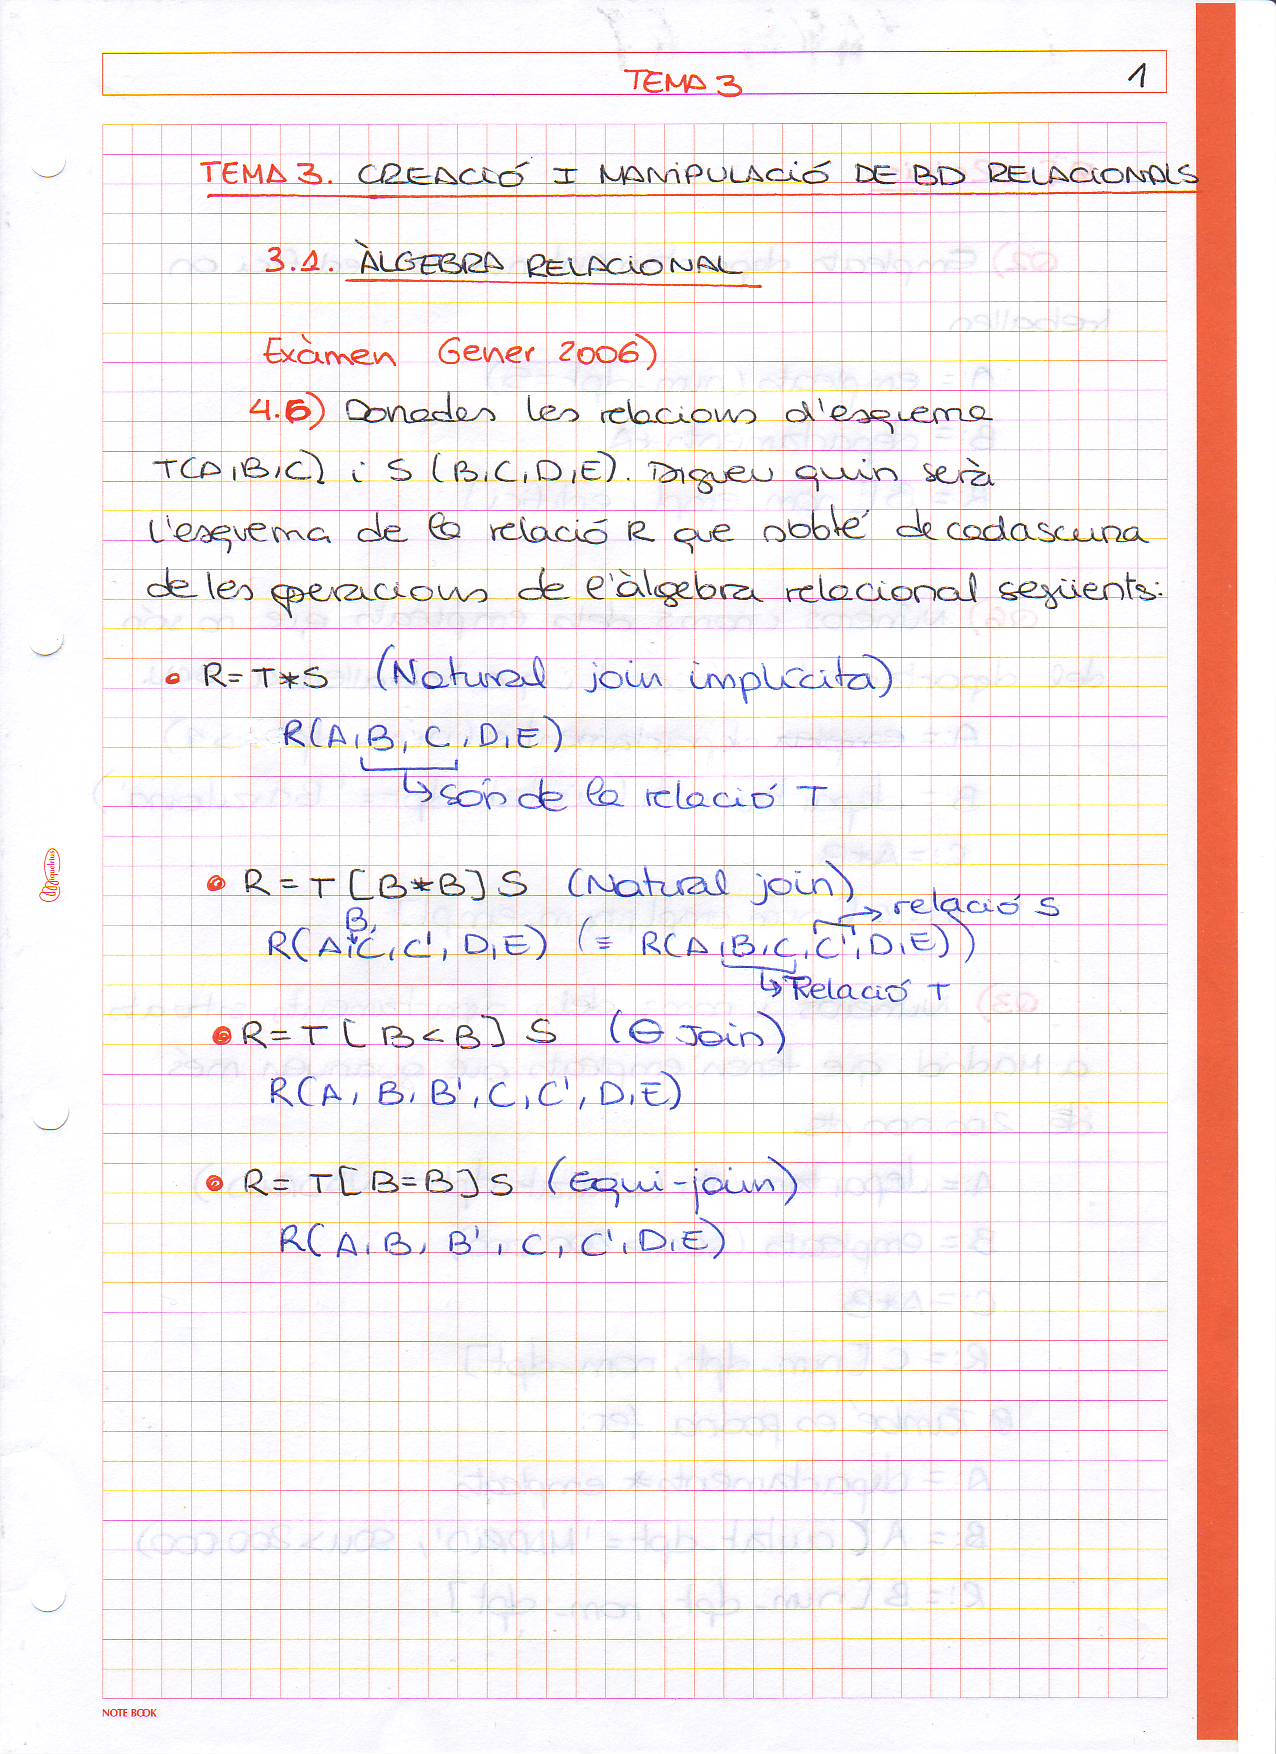 TEMA 3
1
TEMA 3. CREACIÓ I MANIPULACIÓ DE BD RELACIONALS
3.1. ÀLGEBRA RELACIONAL
Exàmen Gener 2006)
4.6) Donades les relacions d'esquema
T(A,B,C) i S (B,C,D,E). Digueu quin serà
l'esquema de la relació R que s'obté de cadascuna
de les operacions de l'àlgebra relacional següents:
• R=T*S (Natural join implícita)
R(A,B,C,D,E)
↳ són de la relació T
• R=T[B*B]S (Natural join)
→ relació S
B,
R(A,C,C',D,E) (≡ R(A,B,C,C',D,E))
↳ Relació T
• R=T[B<B]S (θ Join)
R(A,B,B',C,C',D,E)
• R=T[B=B]S (Equi-join)
R(A,B,B',C,C',D,E)
miquelrius
NOTE BOOK